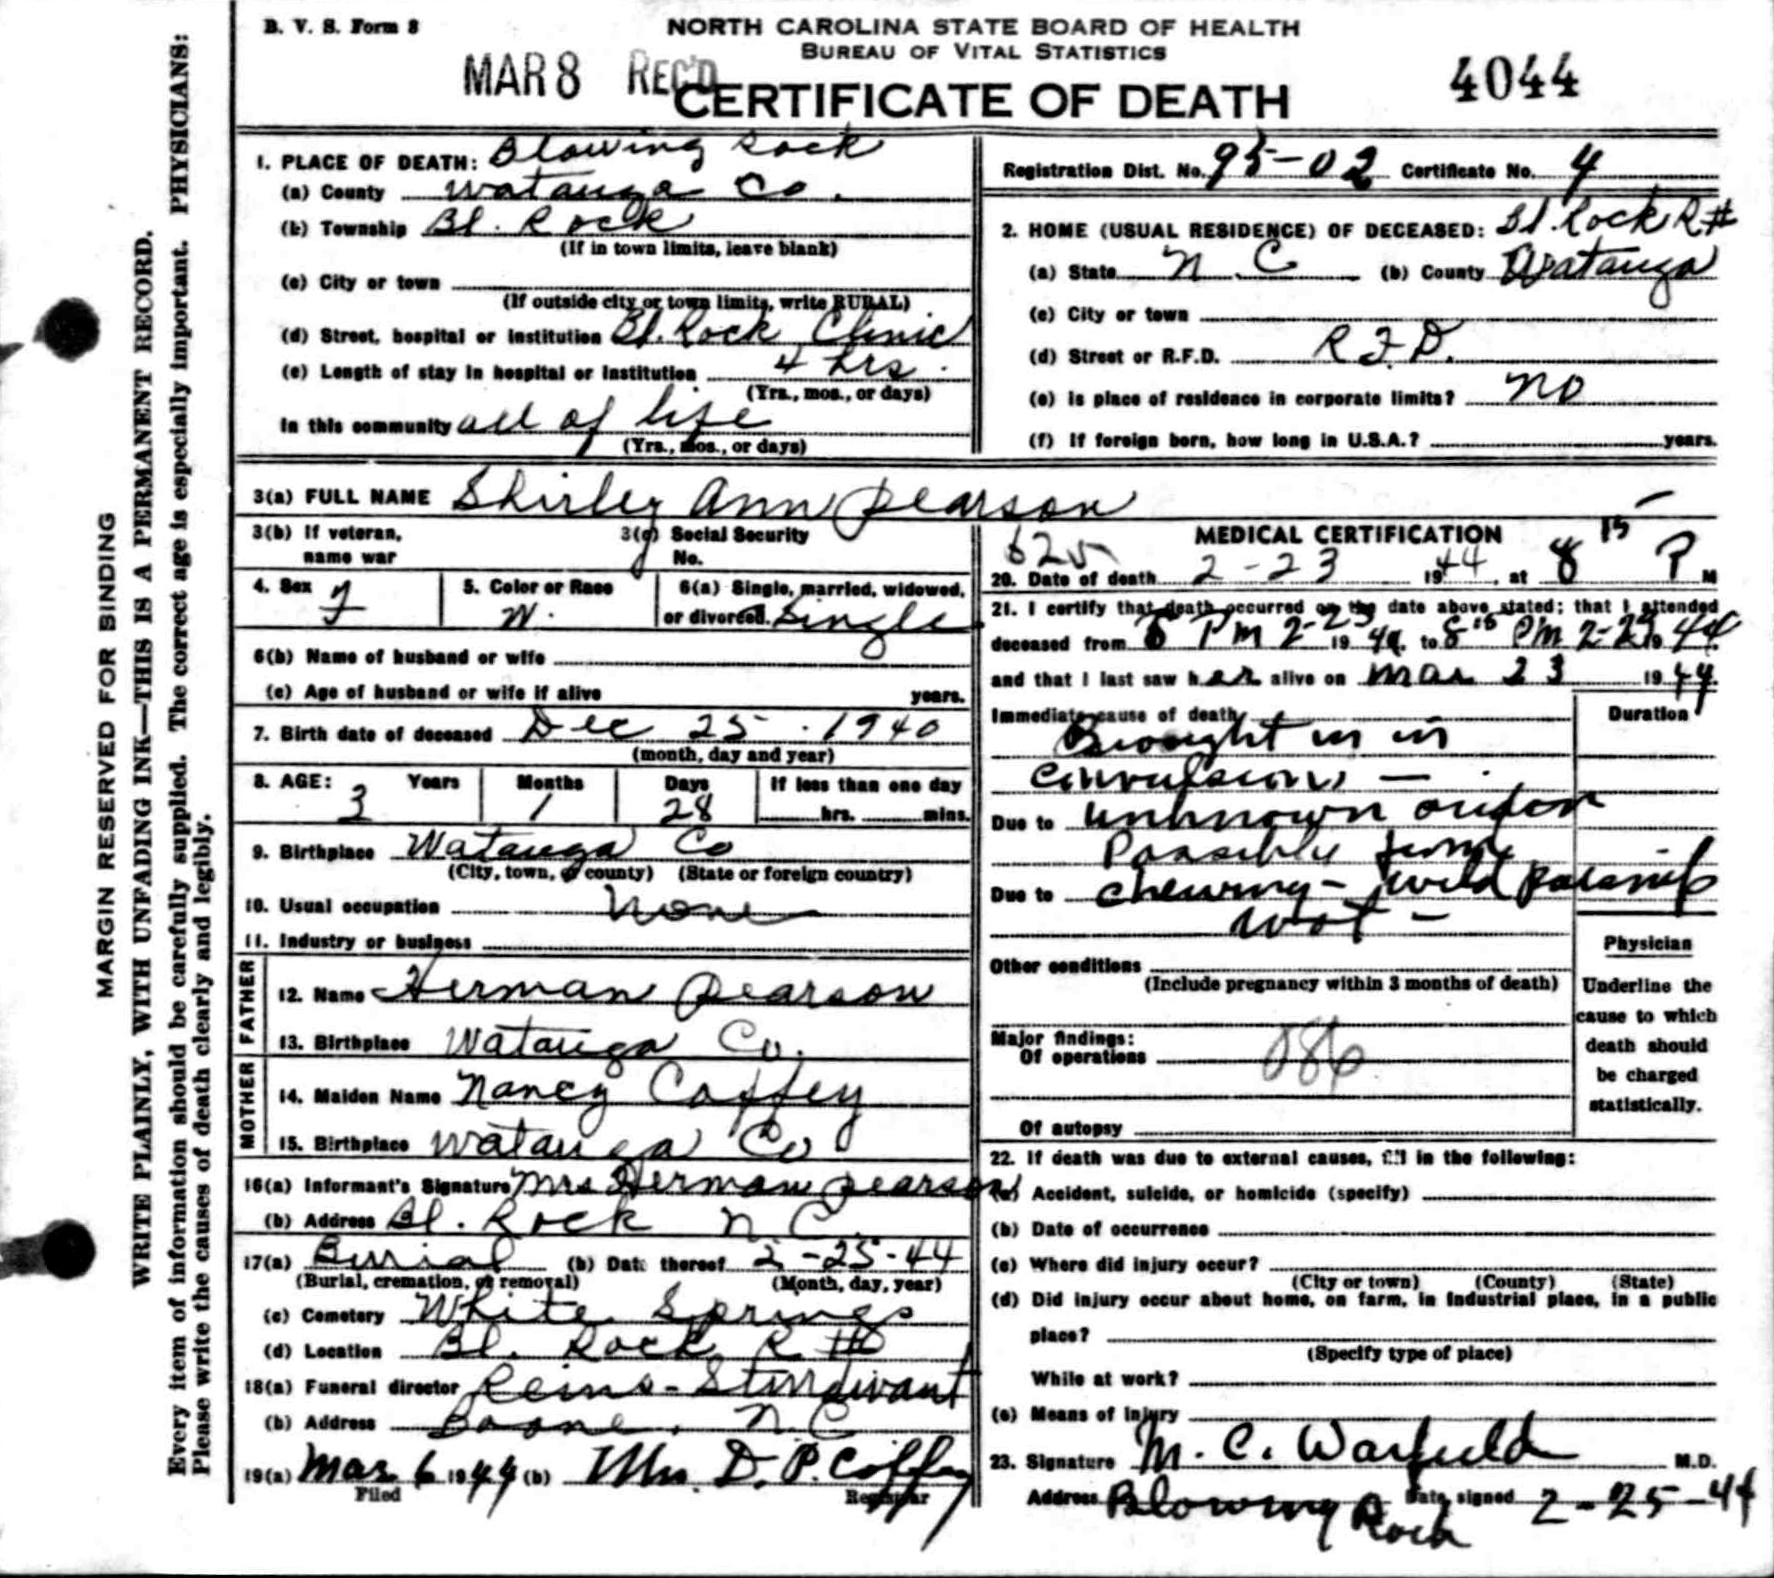 B. V. S. Form 8
NORTH CAROLINA STATE BOARD OF HEALTH
BUREAU OF VITAL STATISTICS
MAR 8 REC'D
CERTIFICATE OF DEATH
4044
MARGIN RESERVED FOR BINDING
WRITE PLAINLY, WITH UNFADING INK—THIS IS A PERMANENT RECORD.
Every item of information should be carefully supplied. The correct age is especially important. PHYSICIANS:
Please write the causes of death clearly and legibly.
1. PLACE OF DEATH: Blowing Rock
(a) County Watauga Co.
(b) Township Bl. Rock
(If in town limits, leave blank)
(c) City or town
(If outside city or town limits, write RURAL)
(d) Street, hospital or institution Bl. Rock Clinic
(e) Length of stay in hospital or institution 4 hrs.
(Yrs., mos., or days)
In this community all of life
(Yrs., mos., or days)
Registration Dist. No. 95-02 Certificate No. 4
2. HOME (USUAL RESIDENCE) OF DECEASED: Bl. Rock R#
(a) State N. C (b) County Watauga
(c) City or town
(d) Street or R.F.D. R F D.
(e) Is place of residence in corporate limits? No
(f) If foreign born, how long in U.S.A.? years.
3(a) FULL NAME Shirley Ann Pearson
3(b) If veteran, name war
3(c) Social Security No.
4. Sex F
5. Color or Race W.
6(a) Single, married, widowed, or divorced. Single
6(b) Name of husband or wife
(c) Age of husband or wife if alive years.
7. Birth date of deceased Dec 25 . 1940
(month, day and year)
8. AGE: 3 Years 1 Months 28 Days If less than one day hrs. mins.
9. Birthplace Watauga Co
(City, town, or county) (State or foreign country)
10. Usual occupation None
11. Industry or business
FATHER
12. Name Herman Pearson
13. Birthplace Watauga Co.
MOTHER
14. Maiden Name Nancy Coffey
15. Birthplace Watauga Co
16(a) Informant's Signature Mrs Herman Pearson
(b) Address Bl. Rock N C.
17(a) Burial (b) Date thereof 2-25-44
(Burial, cremation, or removal) (Month, day, year)
(c) Cemetery White Springs
(d) Location Bl. Rock R #
18(a) Funeral director Reins-Sturdivant
(b) Address Boone, N.C
19(a) Mar 6 1944 (b) Mrs. D. P. Coffey
Filed Registrar
625
MEDICAL CERTIFICATION
20. Date of death 2-23 1944, at 8 15 P M
21. I certify that death occurred on the date above stated; that I attended
deceased from 5 PM 2-23 1944 to 8 15 PM 2-23 1944
and that I last saw her alive on Mar 23 1944.
Immediate cause of death
Duration
Brought in in
convulsions —
Due to unknown origin
Possibly from
Due to chewing - wild parsnip
root -
Other conditions
(Include pregnancy within 3 months of death)
Major findings:
Of operations
086
Of autopsy
Physician
Underline the
cause to which
death should
be charged
statistically.
22. If death was due to external causes, fill in the following:
(a) Accident, suicide, or homicide (specify)
(b) Date of occurrence
(c) Where did injury occur?
(City or town) (County) (State)
(d) Did injury occur about home, on farm, in industrial place, in a public
place?
(Specify type of place)
While at work?
(e) Means of injury
23. Signature M. C. Warfield M.D.
Address Blowing Rock Date signed 2-25-44